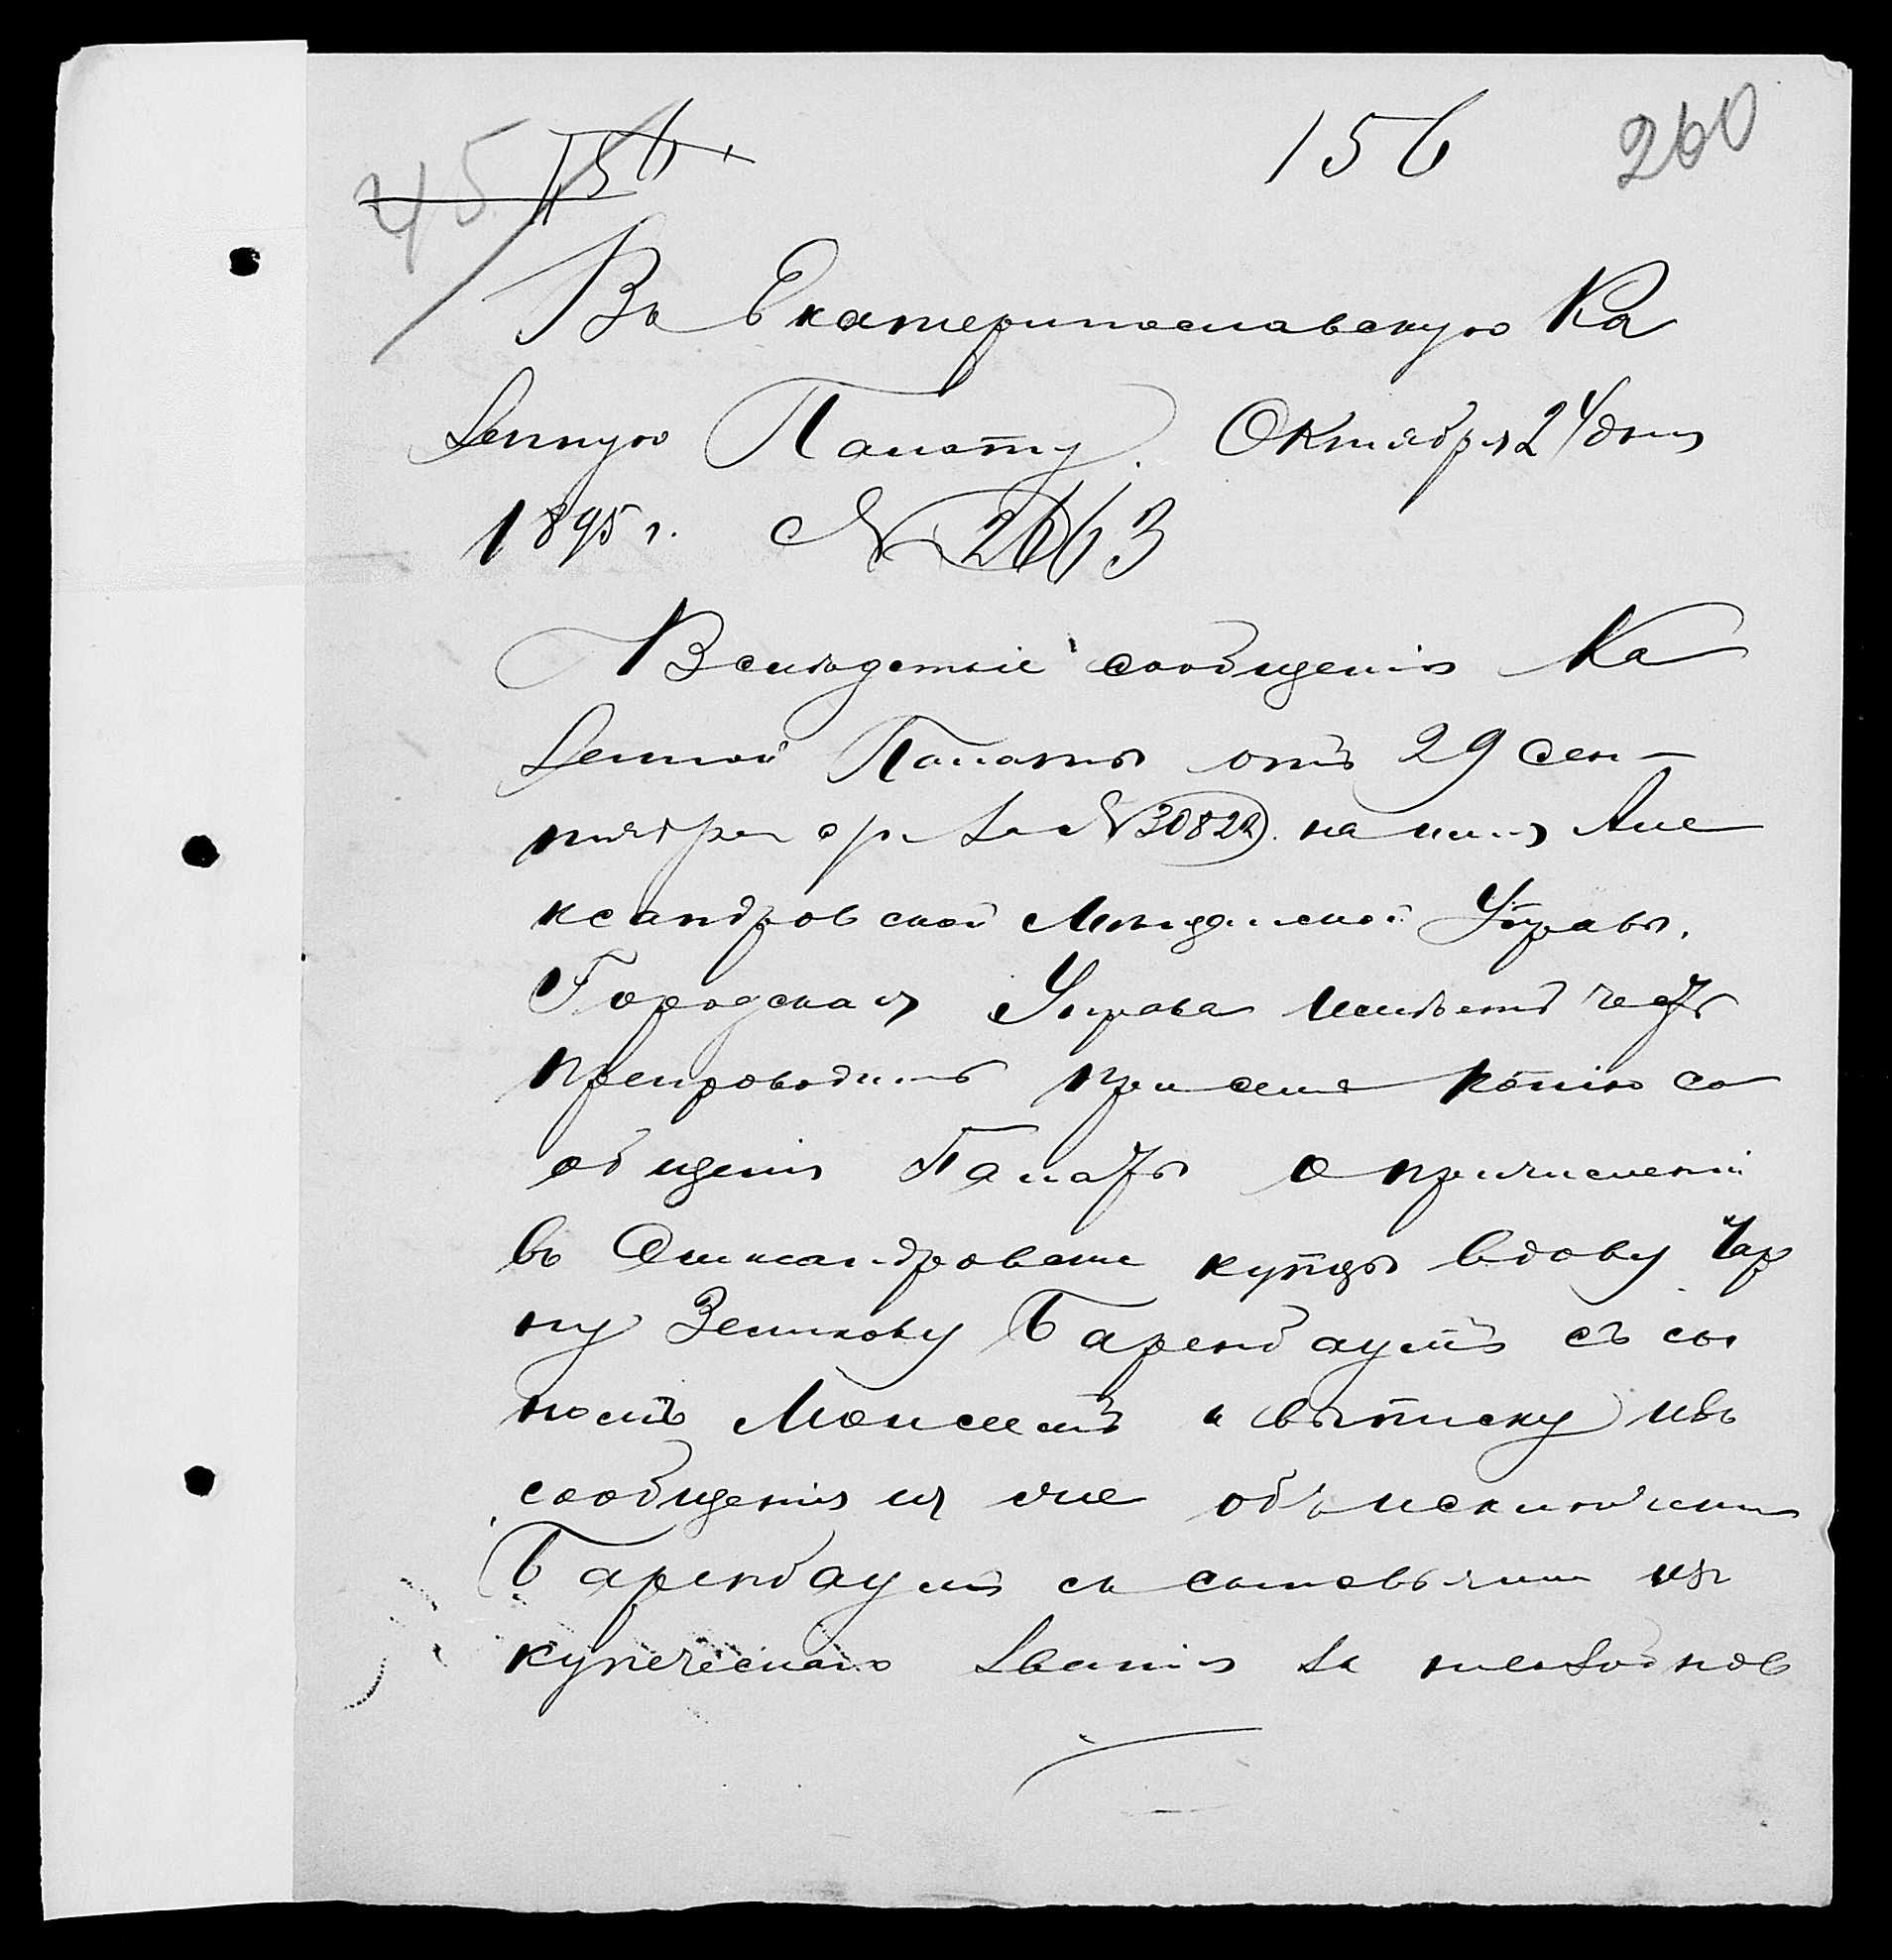 45 156
156 260
Въ Екатеринославскую Ка
зенную Палату. Октября 24 дня
1895 г. № 2663
Вслѣдствіе сообщенія Ка
зенной Палаты отъ 29 сен-
тября с/г. за № 30822. на имя Але
ксандровской Мѣщанской Управы,
Городская Управа имѣетъ честь
препроводить при семъ копію со
общенія Палаты о причисленіи
въ Александровскіе купцы вдову
Зеликову Баренбаумъ съ сы
номъ Моисеемъ и выписку изъ
сообщенія ея же объ исключеніи
Баренбаумъ съ сыновьями изъ
купеческаго званія за невзносъ